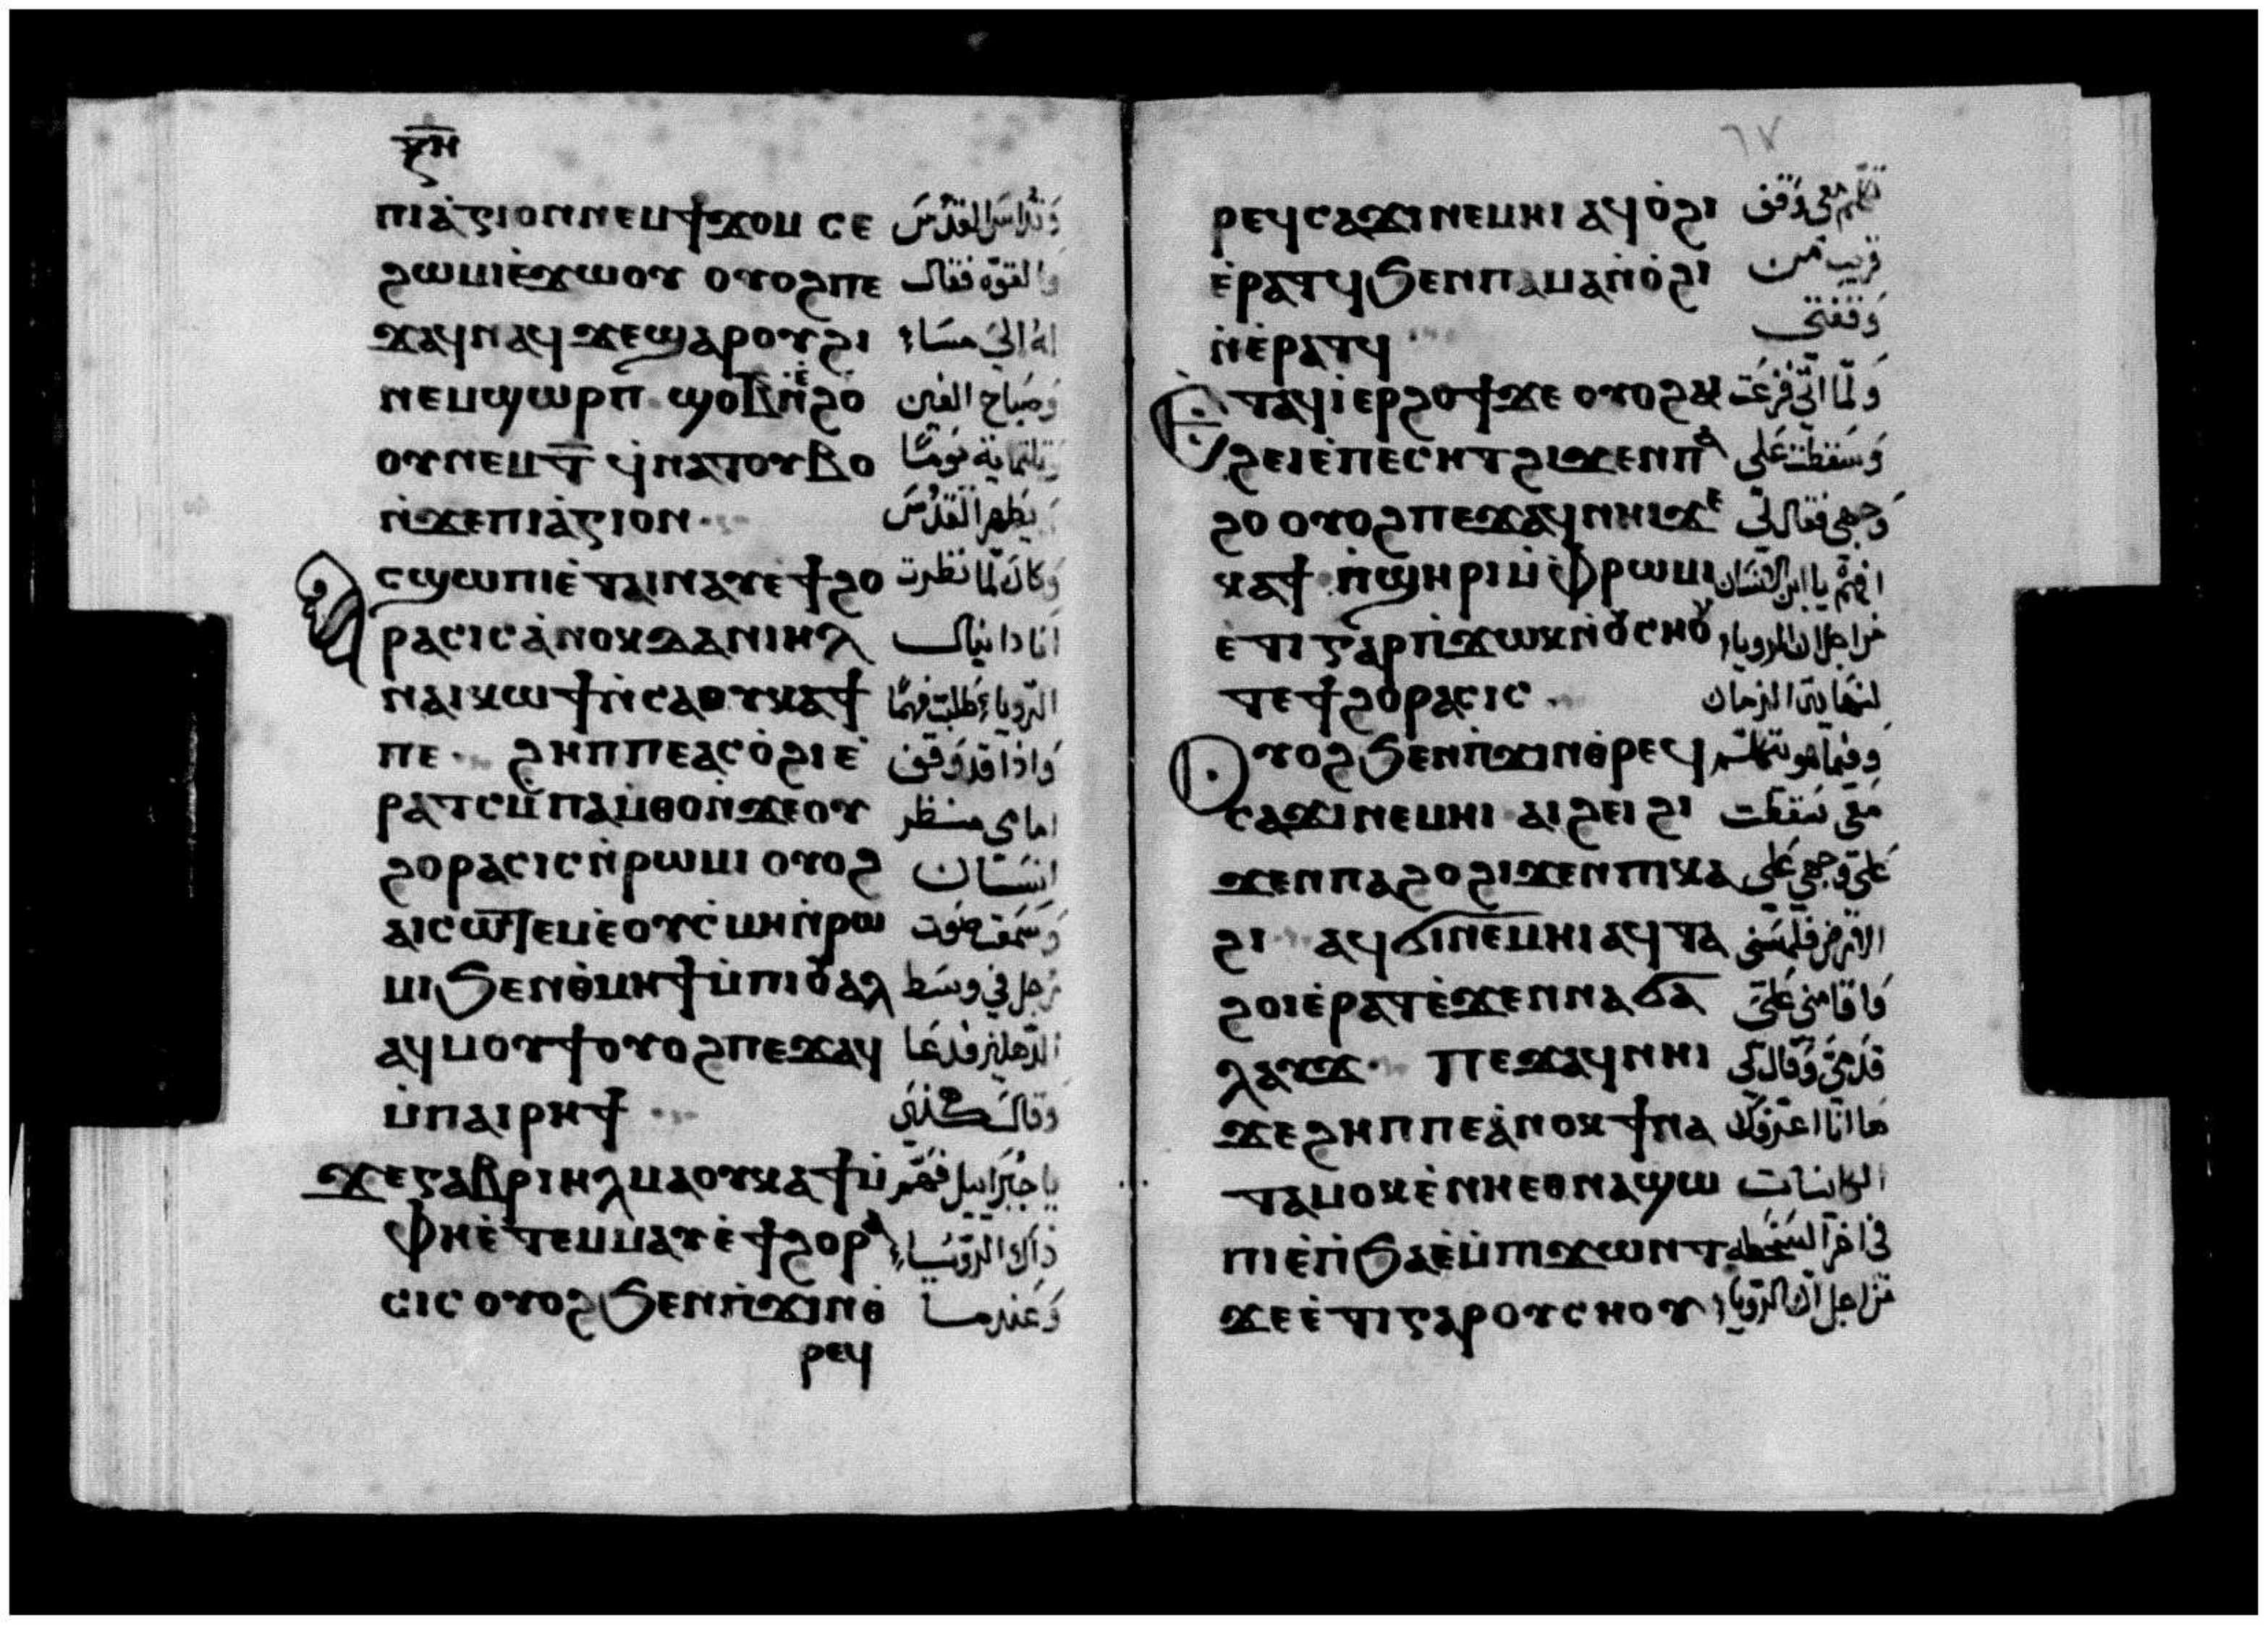 ⲝⲏ
ⲡⲓⲁ̀ⲅⲓⲟⲛ ⲛⲉⲙϯϫⲟⲙ ⲥⲉ وتداس القدس
ϩⲱⲙⲓⲉ̀ϫⲱⲟⲩ ⲟⲩⲟϩⲡⲉ والقوّه فقال
ϫⲁϥⲛⲁϥ ϫⲉϣⲁⲣⲟⲩϩⲓ له الي مساء
ⲛⲉⲙϣⲱⲣⲡ ϣⲟⲃⲛ̀ⲉ̀ϩⲟ وصباح الفين
ⲟⲩⲛⲉⲙⲧ̅ ϥ̀ⲛⲁⲧⲟⲩⲃⲟ وثلثماية يومًا
ⲛ̀ϫⲉⲡⲓⲁ̀ⲅⲓⲟⲛ يطهر القدس
ⲥϣⲱⲡⲓⲉ̀ⲧⲁⲓⲛⲁⲩⲉ̀ϯϩⲟ وكان لما نظرت
ⲣⲁⲥⲓⲥⲁ̀ⲛⲟⲕⲇⲁⲛⲓⲏⲗ انا دانيال
ⲛⲁⲓⲕⲱϯⲛ̀ⲥⲁⲟⲩⲕⲁϯ الرويا طلبت فهمًا
ⲡⲉ ϩⲏⲡⲡⲉⲁⲥⲟ̀ϩⲓⲉ̀ واذا قد وقف
ⲣⲁⲧⲥⲙ̀ⲡⲁⲙ̀ⲑⲟⲛ̀ϫⲉⲟⲩ امامى منظر
ϩⲟⲣⲁⲥⲓⲥⲛ̀ⲣⲱⲙⲓ ⲟⲩⲟϩ انسان
ⲁⲓⲥⲱⲧⲉⲙⲉ̀ⲟⲩⲥ̀ⲙⲏⲛ̀ⲣⲱ وسمعت صوت
ⲙⲓϧⲉⲛⲑ̀ⲙⲏϯⲙ̀ⲡⲓⲟⲩⲁⲗ رجل في وسط
ⲁϥⲙⲟⲩϯⲟⲩⲟϩⲡⲉϫⲁϥ الدهليز فدعا
ⲙ̀ⲡⲁⲓⲣⲏϯ وقال
ϫⲉⲅⲁⲃⲣⲓⲏⲗⲙⲁⲟⲩⲕⲁϯⲙ̀ يا جبرائيل فهّم
ⲫⲏⲉ̀ⲧⲉⲙⲙⲁⲩⲉ̀ϯϩⲟⲣⲁ ذاك الرويا
ⲥⲓⲥ ⲟⲩⲟϩϧⲉⲛⲡ̀ϫⲓⲛⲑ̀ وعندما
ⲣⲉϥ
٦٧
ⲣⲉϥⲥⲁϫⲓⲛⲉⲙⲏⲓ ⲁϥⲟ̀ϩⲓ تكلم معي وقف
ⲉ̀ⲣⲁⲧϥϧⲉⲛⲡⲁⲙⲁⲛ̀ⲟ̀ϩⲓ قريب من
ⲛ̀ⲉ̀ⲣⲁⲧϥ وقفتي
Ⲉⲧⲁϥⲓ̀ⲉⲣϩⲟϯϫⲉ ⲟⲩⲟϩⲁⲓ ولما اتى فزعت
ϩⲉⲓⲉ̀ⲡⲉⲥⲏⲧϩⲓϫⲉⲛⲡⲁ وسقطت على
ϩⲟ ⲟⲩⲟϩⲡⲉϫⲁϥⲛⲏⲓϫⲉ وجهي فقال لي
ⲕⲁϯ ⲡ̀ϣⲏⲣⲓⲙ̀ⲫ̀ⲣⲱⲙⲓ افهم يا ابن الانسان
ⲉ̀ⲧⲓⲅⲁⲣⲡ̀ϫⲱⲕⲛ̀ⲟⲩⲥⲏⲟⲩ من اجل ان الرويا
ⲧⲉϯϩⲟⲣⲁⲥⲓⲥ لنهاية الزمان
Ⲟⲩⲟϩϧⲉⲛⲡ̀ϫⲓⲛⲑ̀ⲣⲉϥ وفيما هو يتكلم
ⲥⲁϫⲓⲛⲉⲙⲏⲓ ⲁⲓϩⲉⲓ ϩⲓ معي سقطت
ϫⲉⲛⲡⲁϩⲟϩⲓϫⲉⲛⲡⲓⲕⲁ علي وجهي علي
ϩⲓ ⲁϥϭⲓⲛⲉⲙⲏⲓⲁϥⲧⲁ الارض فلمسني
ϩⲟⲓⲉ̀ⲣⲁⲧⲉ̀ϫⲉⲛⲛⲁϭⲁ واقامني على
ⲗⲁⲩϫ ⲡⲉϫⲁϥⲛⲏⲓ قدمي وقال لي
ϫⲉϩⲏⲡⲡⲉⲁ̀ⲛⲟⲕϯⲛⲁ ها انا اعرفك
ⲧⲁⲙⲟⲕⲉ̀ⲛⲏⲉⲑⲛⲁϣⲱ الكائنات
ⲡⲓⲉ̀ⲛ̀ϧⲁⲉ̀ⲙ̀ⲡⲓϫⲱⲛⲧ في اخر السخط
ϫⲉⲉ̀ⲧⲓⲅⲁⲣⲟⲩⲥⲏⲟⲩ من اجل ان الرويا